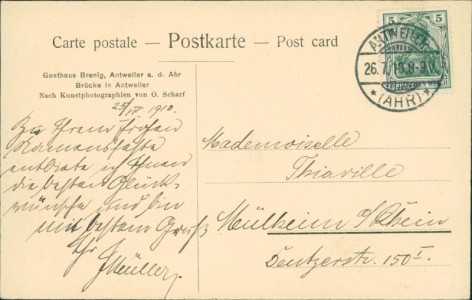 Carte postale - Postkarte - Post card
Gasthaus Brenig, Antweiler a. d. Ahr
Brücke in Antweiler
Nach Kunstphotographien von O. Scharf
5 5
ANTWEILER
26.7. 8-9
* (AHR) *
1910.
Zu Ihrem frohen
Namensfeste
entbiete ich Ihnen
die besten Glück-
wünsche und bin
mit bestem Gruß
Ihr
J Müller.
Mademoiselle
Thiaville
Mülheim a/Rhein
Deutzerstr. 150 I.